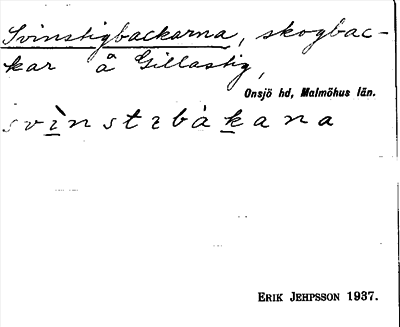 Svinstigbackarna, skogbac-
kar å Gillastig,
Onsjö hd, Malmöhus län.
svìnstɪbàkana
ERIK JEHPSSON 1937.